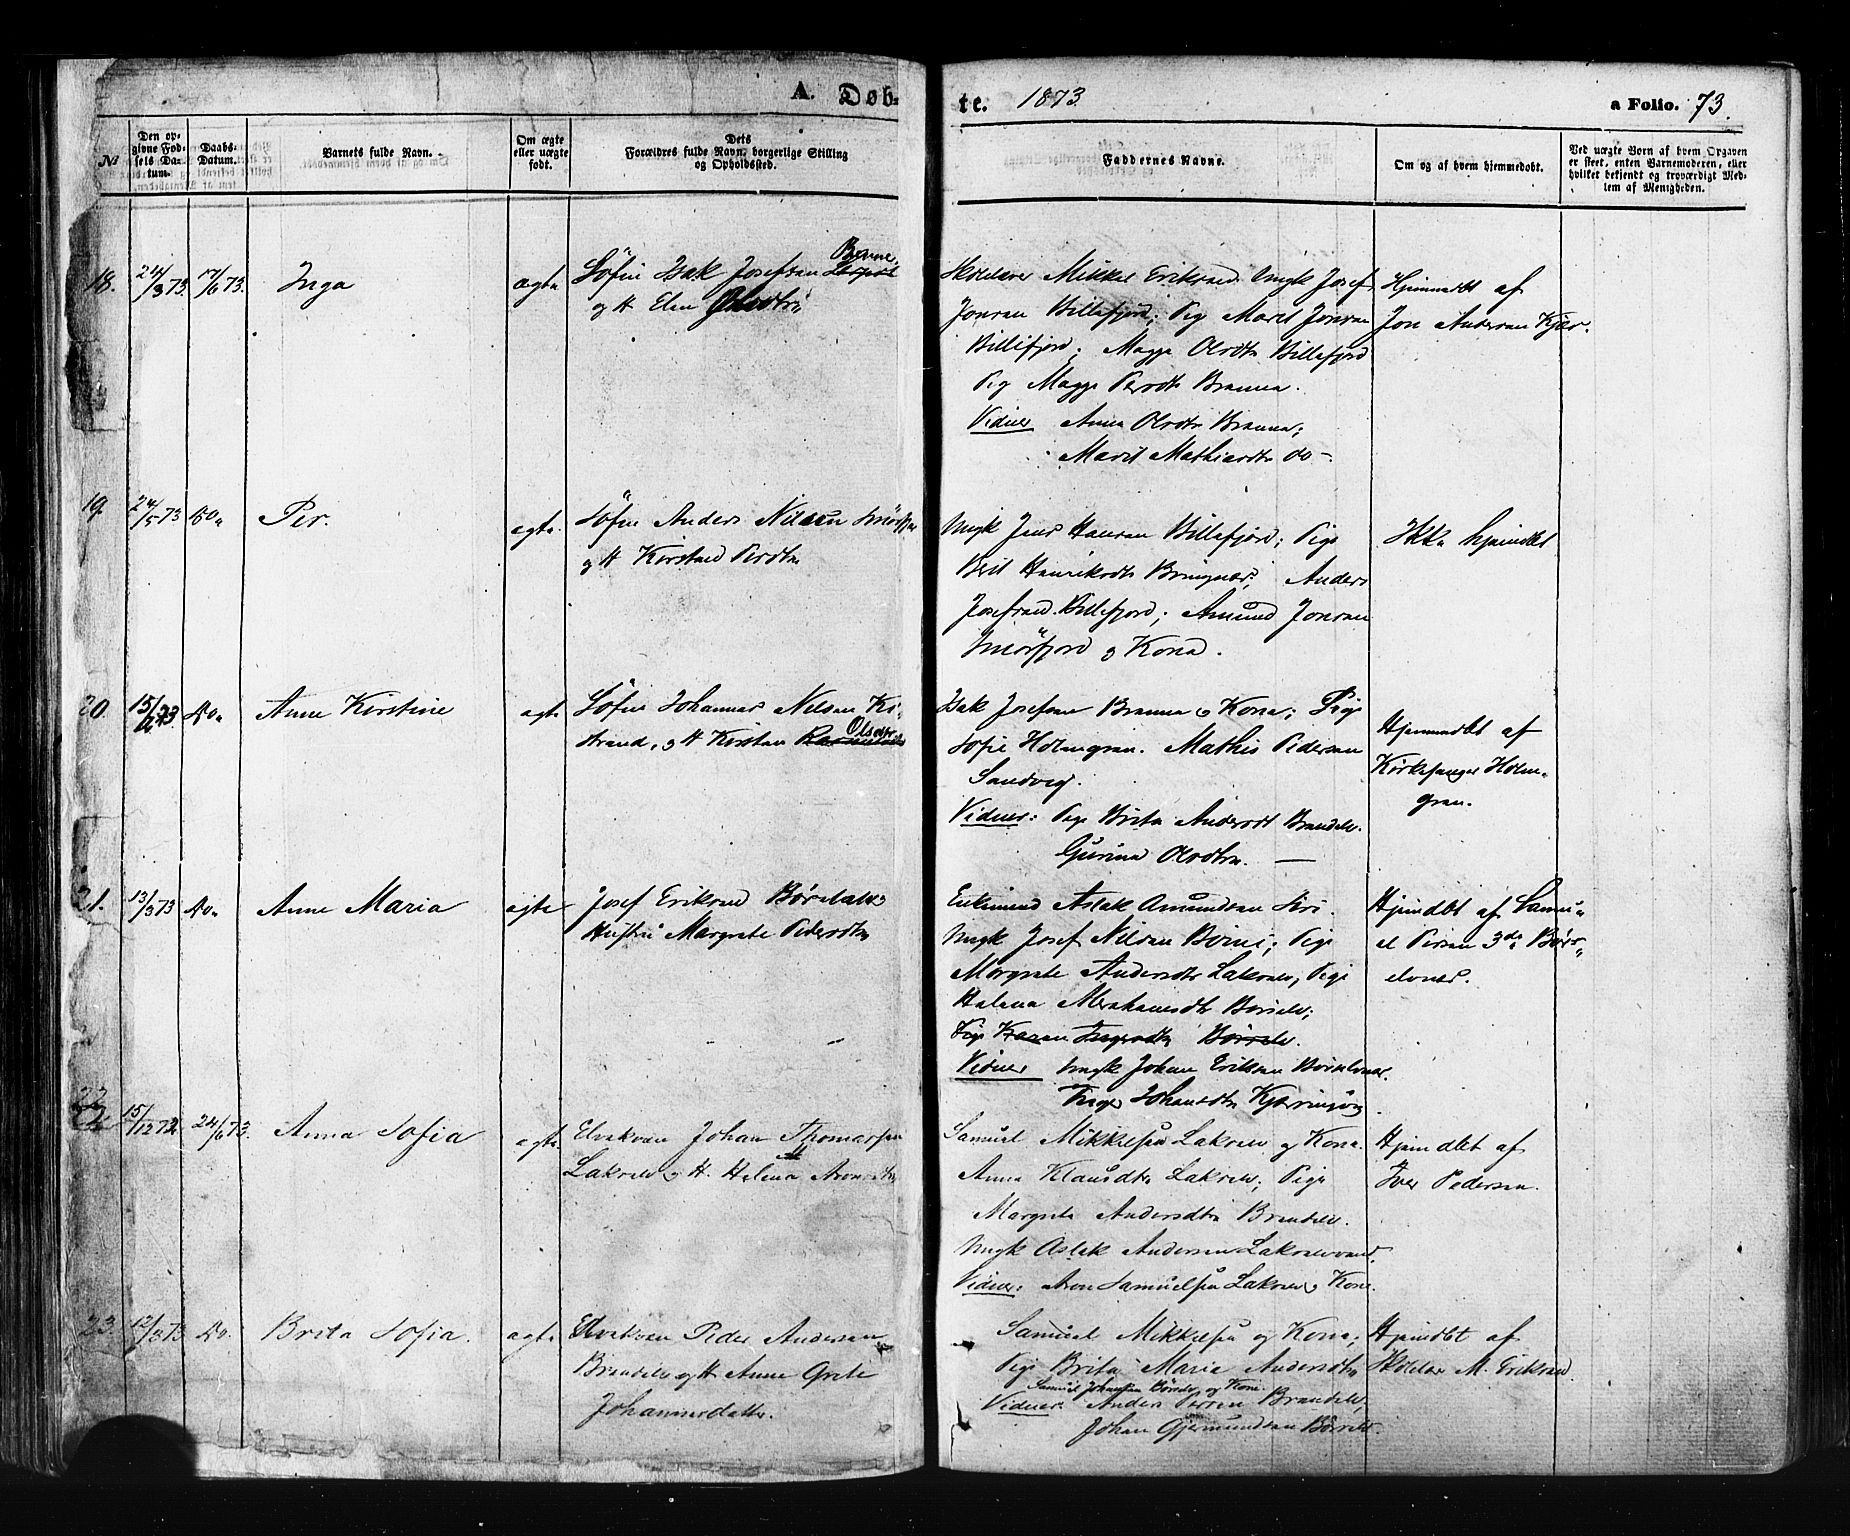 A. Døb-
te. 1873. a Folio. 73.
No
Den op-
givne Fød-
sels Da-
tum.
Daabs-
Datum.
Barnets fulde Navn.
Om ægte
eller uægte
født.
Dets
Forældres fulde Navn, borgerlige Stilling
og Opholdssted.
Faddernes Navne.
Om og af hvem hjemmedøbt.
Ved uægte Børn af hvem Opgaven
er skeet, enten Barnemoderen, eller
hvilket bekjendt og troværdigt Med-
lem af Menigheden.
18. 24/3 73. 17/6 73. Inga ægte
Söfin Isak Josefsen
og H Elen
Mikkel Eriksen Ungk Josef
Jonsen Billefjord; Pig Marit Jonsen
Billefjord; Magga Olsdtr Billefjord
Pig Magga Persdtr Brenna.
Vidner Anna Olsdtr Brenna;
Marit Mathisdtr do-
Hjemmedbt af
Jon Andersen
19. 24/5 73 Do. Per. ægte.
Söfin Anders Nilsen
og H Kirsten Persdtr
Ungk Jens Hansen Billefjord; Pige
Berit Henriksdtr Anders
Josefsen Billefjord; Amund Jonsen
Smörfjord og Kona.
Ikke hjemdbt
20. 15/2 73 Do. Anne Kirstine ægte
Söfin Johannes Nilsen Ki-
strand, og H Kirsten Olsdtr
Isak Josefsen Brenna og Kona; Pige
Sofie Holmgren. Mathis Pedersen
Sandvig.
Vidner: Pige Brita Andersdt Brendelv.
Gurina Olsdtr. —
Hjemmedbt af
Kirkesanger Holm-
gren.
21. 13/3 73 Do. Anne Maria ægte
Josef Eriksen Börselv
Hustru Margrete Pedersdtr
Enkemand Aslak Amundsen
Ungk Josef Nilsen Pige
Margrete Andersdtr Lakselv, Pige
Helena Abrahamsdtr Börselv;
Pige Karen Börselv.
Vidner Ungk Johan Eriksen
Inger Johansdtr
Hjemdbt af Samu-
el Persen 3de Börs-
elvnes.
22. 15/12 72 24/6 73. Anna Sofia ægte.
Elvekvæn Johan Thomassen
Lakselv og H. Helena
Samuel Mikkelsen Lakselv og Kona
Anna Klausdtr Lakselv; Pige
Margreta Andersdtr Brendelv.
Ungk Aslak Andersen Lakselvvand
Vidner: Aron Samuelsen Lakselv og Kone.
Hjemdbt af
Iver Pedersen.
23. 12/3 73 Do. Brita Sofia. ægte
Elvekvæn Peder Andersen
Brendelv og H Anne Grete
Johannesdatter.
Samuel Mikkelsen og Kona;
Pige Brita Maria Andersdtr
Samuel Johansen Börselv og Kone
Vidner Anders Persen Brendelv,
Johan Gjermundsen Börselv.
Hjemdbt af
M. Eriksen.